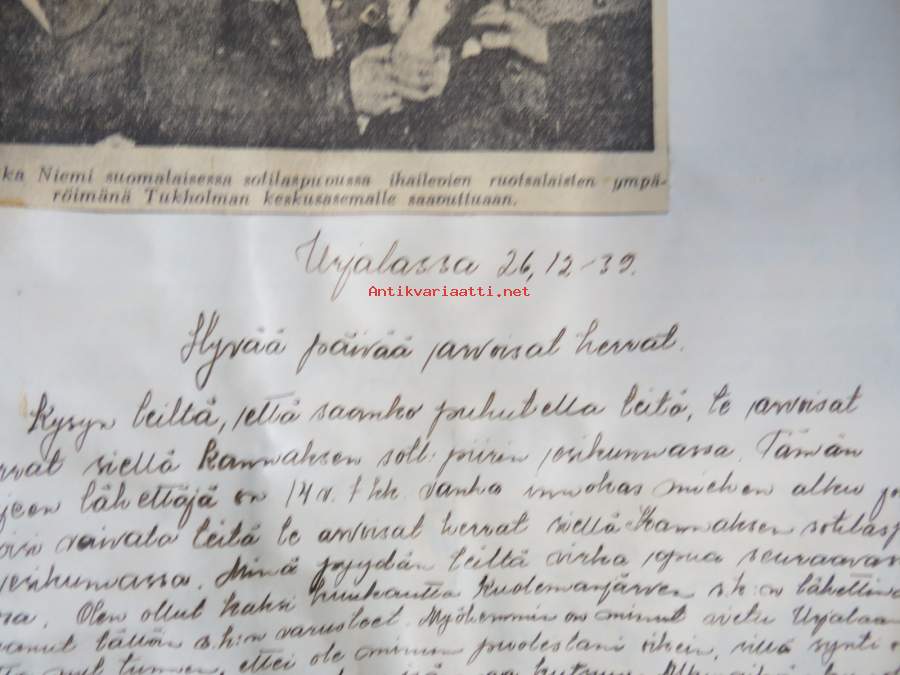 ka Niemi suomalaisessa sotilaspuvussa ihailevien ruotsalaisten ympä-
röimänä Tukholman keskusasemalle saavuttuaan.
Urjalassa 26,12-39.
Antikvariaatti.net
Hyvää päivää arvoisat herrat.
Kysyn teiltä, että saanko puhutella teitä, te arvoisat
rrat siellä Kannaksen sotl: piirin esikunnassa. Tämän
jeen lähettäjä on 14 v. 7 kk. vanha innokas miehen alku
oisi vaivata teitä te arvoisat herrat siellä Kannaksen sotilasp
esikunnassa. Minä pyydän teiltä virka apua seuraavas
sa. Olen ollut kaksi kuukautta Kuolemanjärven s.k:n lähettinä
anut tällön s.k:n varusteet. Myöhemmin on minut Urjalaan
nyt tunnen, ettei ole minun puolestani oikein, sillä synti